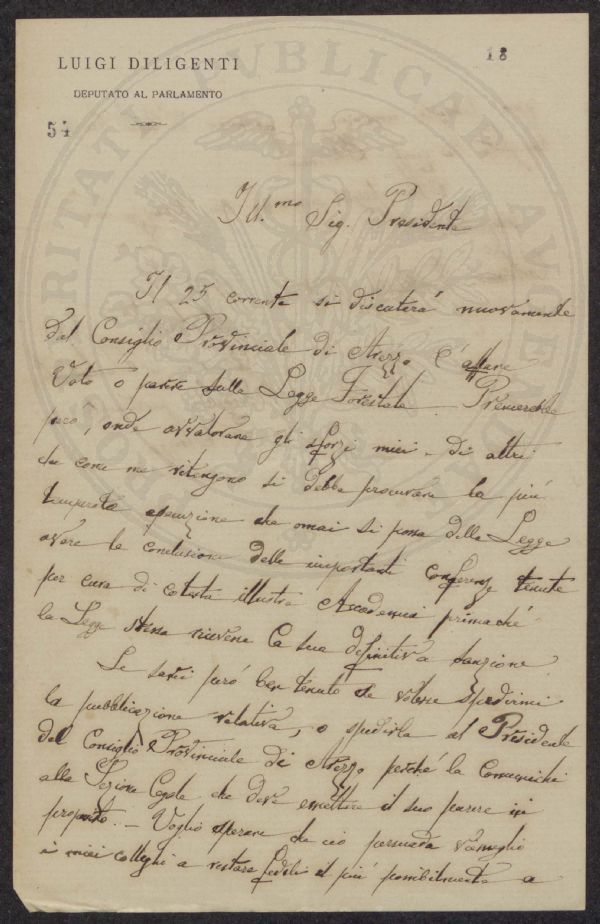 LUIGI DILIGENTI
DEPUTATO AL PARLAMENTO
18
54
Ill.mo Sig. Presidente
Il 25 corrente si discuterà nuovamente
dal Consiglio Provinciale di Arezzo l'affare
Voto o parere sulla Legge Forestale. Premerebbe
però, onde avvalorare gli sforzi miei e di altri
che come me ritengono si debba procurare la più
temperata esecuzione che omai si possa della Legge
avere le conclusioni delle importanti conferenze tenute
per cura di cotesta illustre Accademia primaché
la Legge stessa ricevesse la sua definitiva sanzione.
Le sarei però ben tenuto se volesse spedirmi
la pubblicazione relativa, o spedirla al Presidente
del Consiglio Provinciale di Arezzo perché la comunichi
alla Sezione che deve emettere il suo parere in
proposito. — Voglio sperare che ciò persuada vameglio
i miei colleghi a restare fedeli il più possibilmente a